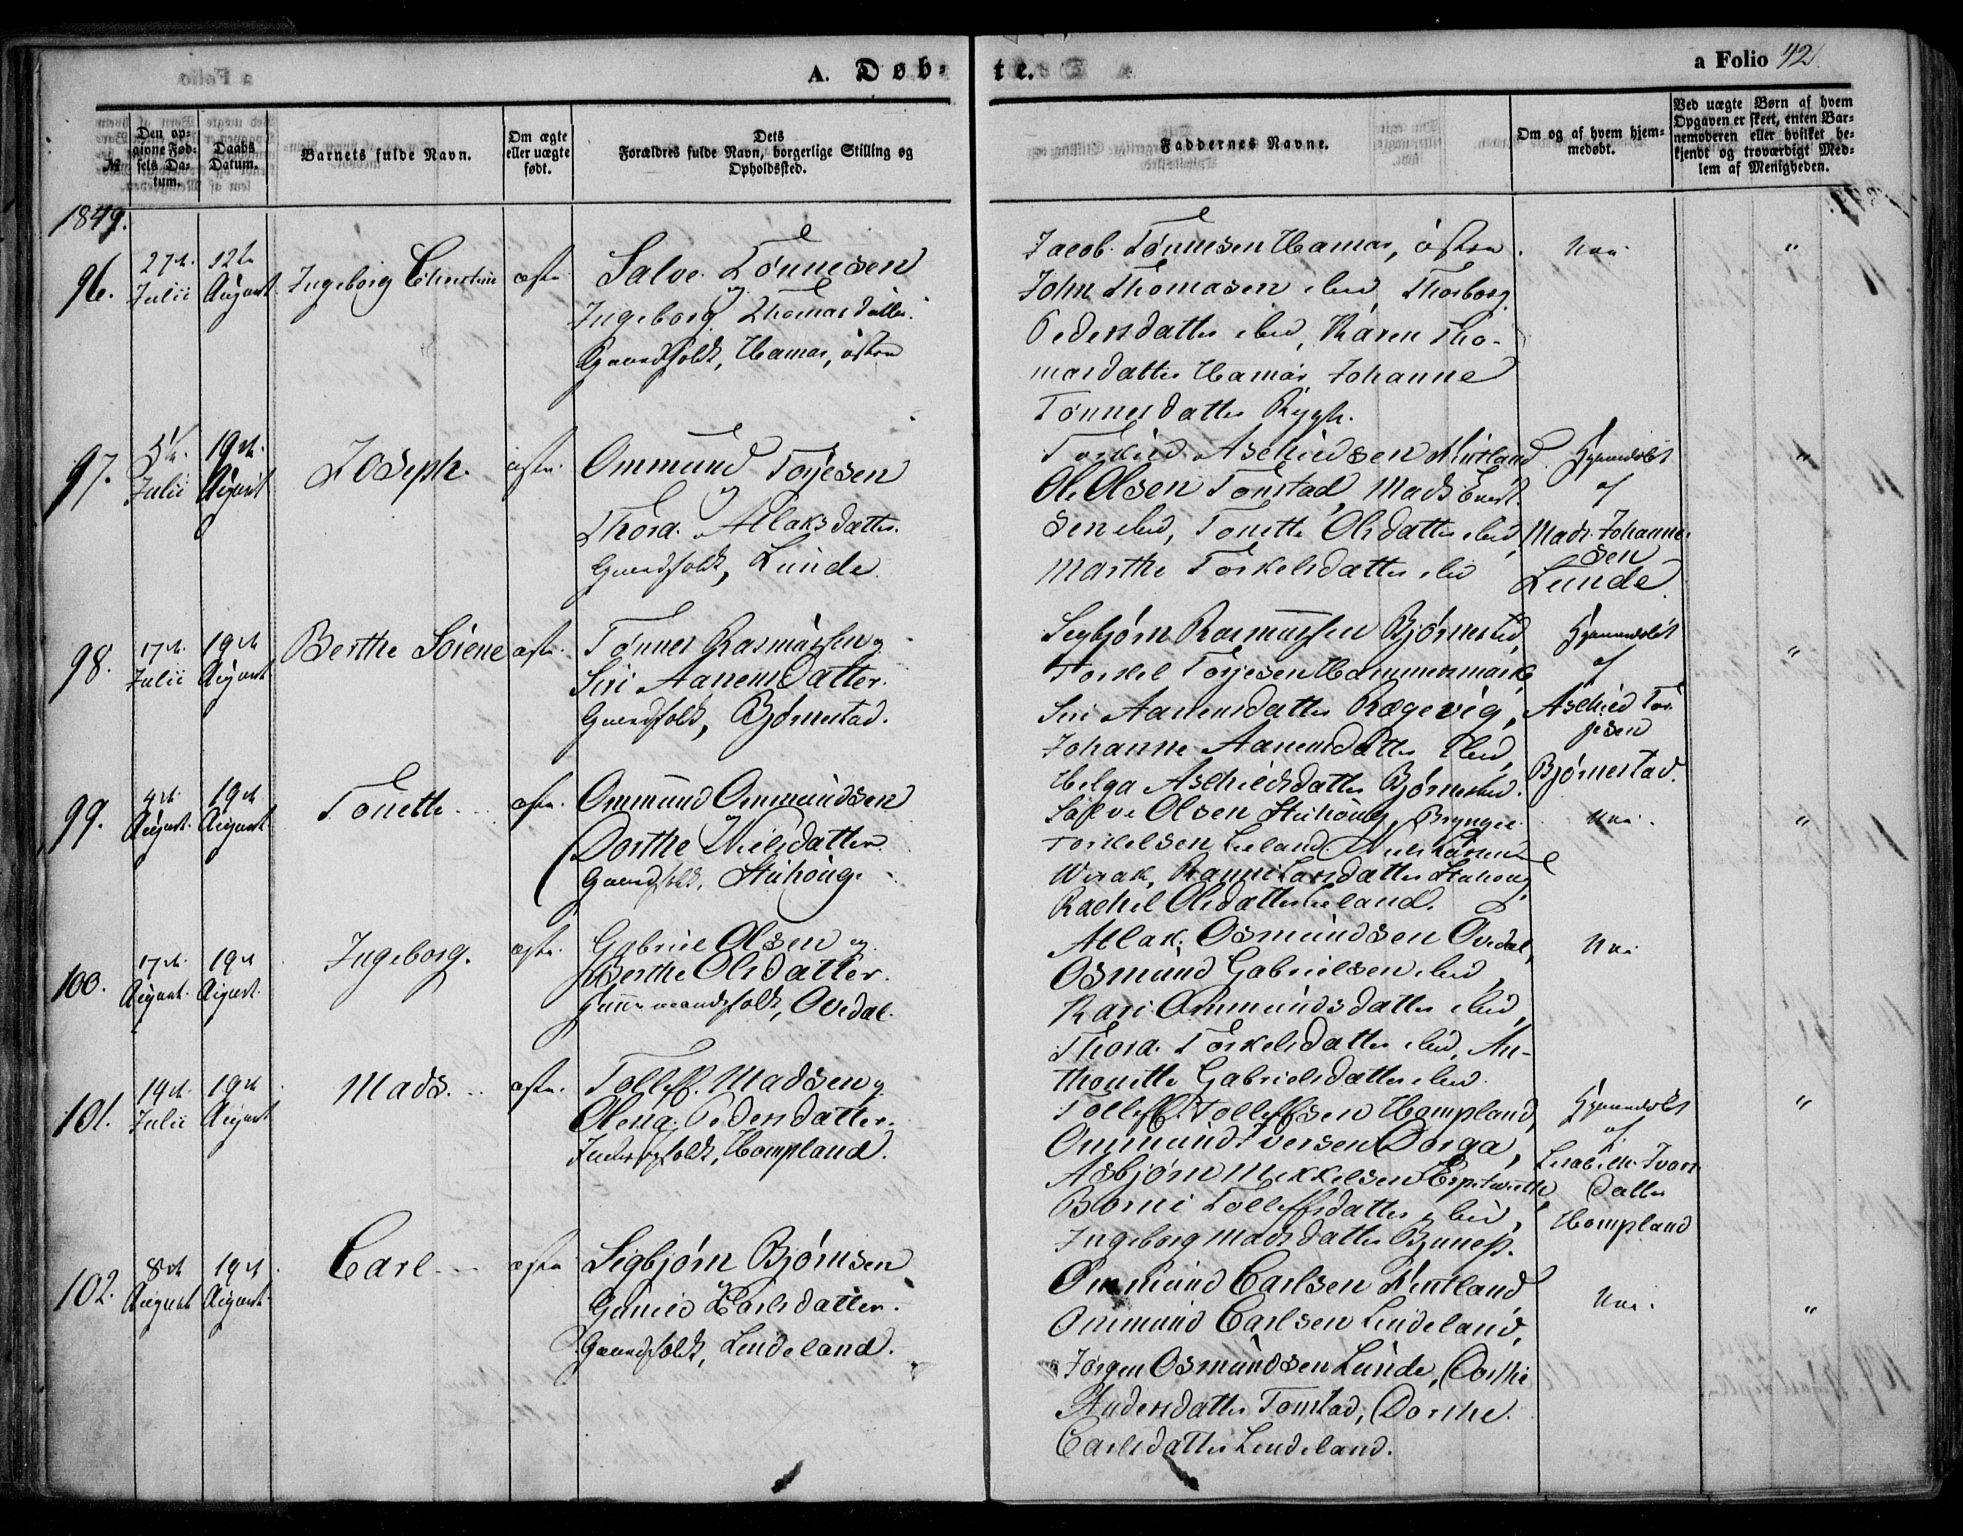 A. Døb-
te.
a Folio 42
№
Den op-
givne Fød-
sels Da-
tum.
Daabs
Datum.
Barnets fulde Navn.
Om ægte
eller uægte
født.
Dets
Forældres fulde Navn, borgerlige Stilling og
Opholdssted.
Faddernes Navne.
Om og af hvem hjem-
medøbt.
Ved uægte Børn af hvem
Opgaven er skeet, enten Bar-
nemoderen eller hvilket be-
kjendt og troværdigt Med-
lem af Menigheden.
1849.
96.
27de
Julii
12te
August
Ingeborg Christine
ægte
Salve Tønnesen
og
Ingeborg Thomasdatter.
Gaardfolk, Hamar, østre
Jacob Tønnesen Hamar, østre
John Thomasen ibid, Thorborg
Pedersdatter ibid, Karen Tho-
masdatter Hamar, Johanne
Tønnesdatter Rygh.
Nei
"
97.
5te
Julii
19de
August
Joseph.
ægte
Ommund Torjesen
og
Thora Atlaksdatter.
Gaardfolk, Lunde.
Torkild Aschildsen Kirtland
Ole Olsen Tonstad, Mads Evert-
sen ibid, Tonette Olsdatter ibid,
Marthe Torkelsdatter ibid
Hjemmedøbt
af
Mads Johanne-
sen
Lunde
"
98.
17de
Julii
19de
August
Berthe Sørene
ægte
Tønnes Rasmussen og
Siri Aanensdatter.
Gaardfolk, Bjørnestad.
Segbjørn Rasmussen Bjørnestad,
Torkel Torjesen Hammersmark,
Siri Aanensdatter Rægevig,
Johanne Aanensdatter ibid,
Helga Aschieldsdatter Bjørnestad.
Hjemmedøbt
af
Aschield Tor-
jesen
Bjørnestad.
"
99.
4de
August
19de
August
Tonette
ægte
Ommund Ommundsen
og
Dorthe Nielsdatter
Gaardfolk, Stuhoug.
Salve Olsen Stuhoug, Bryngel
Torkelsen Leland, Niels Larsen
Wirak, Ranni Larsdatter Stuhoug
Rachel Olsdatter Leland.
Nei
"
100.
17de
August
19de
August
Ingeborg.
ægte
Gabriel Olsen og
Berthe Olsdatter.
folk, Ovedal.
Atlak Osmundsen Ovedal,
Osmund Gabrielsen ibid,
Kari Ommundsdatter ibid,
Thora Torkelsdatter ibid, An-
thonette Gabrielsdatter ibid.
Nei
101.
19de
Julii
19de
August
Mads.
ægte
Tolleff Madsen og
Olena Pedersdatter.
Inderstfolk, Hompland.
Tolleff Tolleffsen Hompland,
Ommund Iversen Dorga,
Asbjørn Mikkelsen Espetvedt,
Borni Tolleffsdatter ibid,
Ingeborg Madsdatter
Hjemmedøbt
af
Lisabeth Ivars
datter
Hompland
"
102.
8de
August
19de
August
Carl
ægte
Sigbjørn Bjørnsen
og
Gunild Karlsdatter.
Gaardfolk, Lindeland.
Ommund Carlsen Kirtland
Ommund Carlsen Lindeland,
Jørgen Osmundsen Lunde, Dorthe
Andersdatter Tonstad, Dorthe
Carlsdatter Lindeland.
Nei.
"